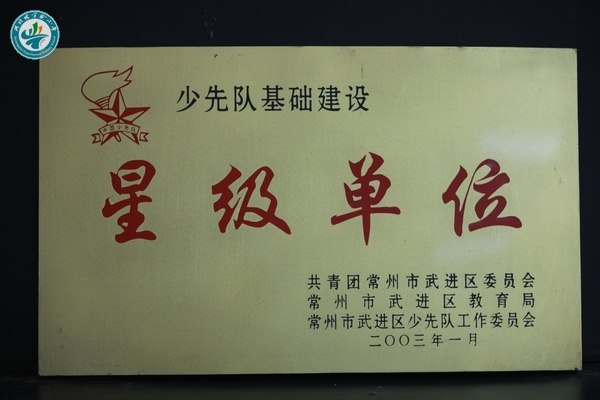 少先队基础建设
中国少先队
星级单位
共青团常州市武进区委员会
常州市武进区教育局
常州市武进区少先队工作委员会
二〇〇三年一月